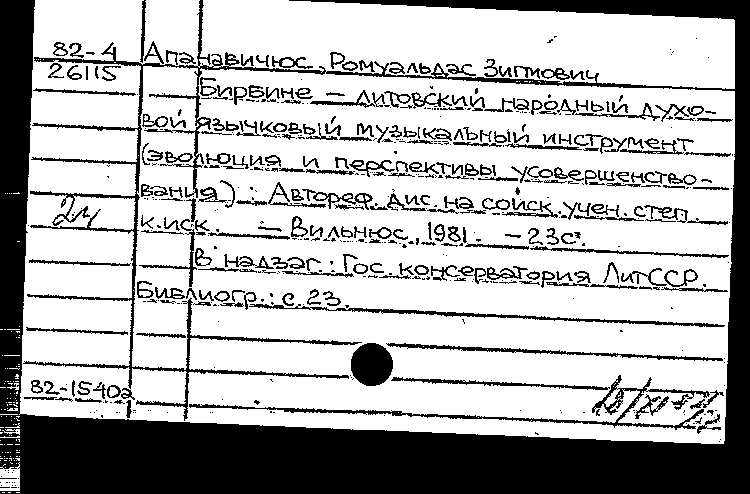 82-4 Апанавичюс, Ромуальдас Зигмович
26115
Бирбине — литовский народный духо-
вой язычковый музыкальный инструмент
(эволюция и перспективы усовершенство-
вания) : Автореф. дис. на соиск. учен. степ.
2м к. иск. — Вильнюс, 1981. — 23с.
В надзаг.: Гос. консерватория ЛитССР.
Библиогр.: с. 23.
82-1540а